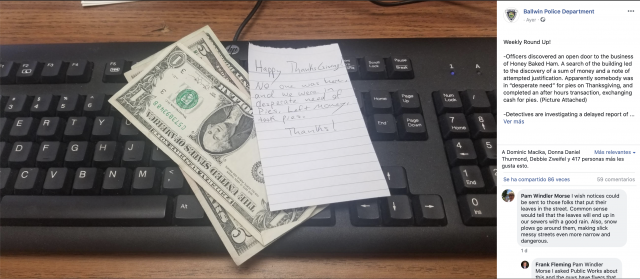 Happy Thanksgiving
No one was here
and we were in
desperate need of
pies. Left money
took pies.
Thanks!
THE UNITED STATES
Ballwin Police Department
Ayer ·
Weekly Round Up!
-Officers discovered an open door to the business
of Honey Baked Ham. A search of the building led
to the discovery of a sum of money and a note of
attempted justification. Apparently somebody was
in "desperate need" for pies on Thanksgiving, and
completed an after hours transaction, exchanging
cash for pies. (Picture Attached)
-Detectives are investigating a delayed report of ...
Ver más
A Dominic Macika, Donna Daniel
Thurmond, Debbie Zweifel y 417 personas más les
gusta esto.
Más relevantes
Se ha compartido 86 veces
58 comentarios
Pam Windler Morse I wish notices could
be sent to those folks that put their
leaves in the street. Common sense
would tell that the leaves will end up in
our sewers with a good rain. Also, snow
plows go around them, making slick
messy streets even more narrow and
dangerous.
1 d
Frank Fleming Pam Windler
Morse I asked Public Works about
this and the guys have fivers that
Scroll
Lock
Pause
Break
Num
Lock
Home
End
Page
Up
Page
Down
Alt
Ctrl
Ins